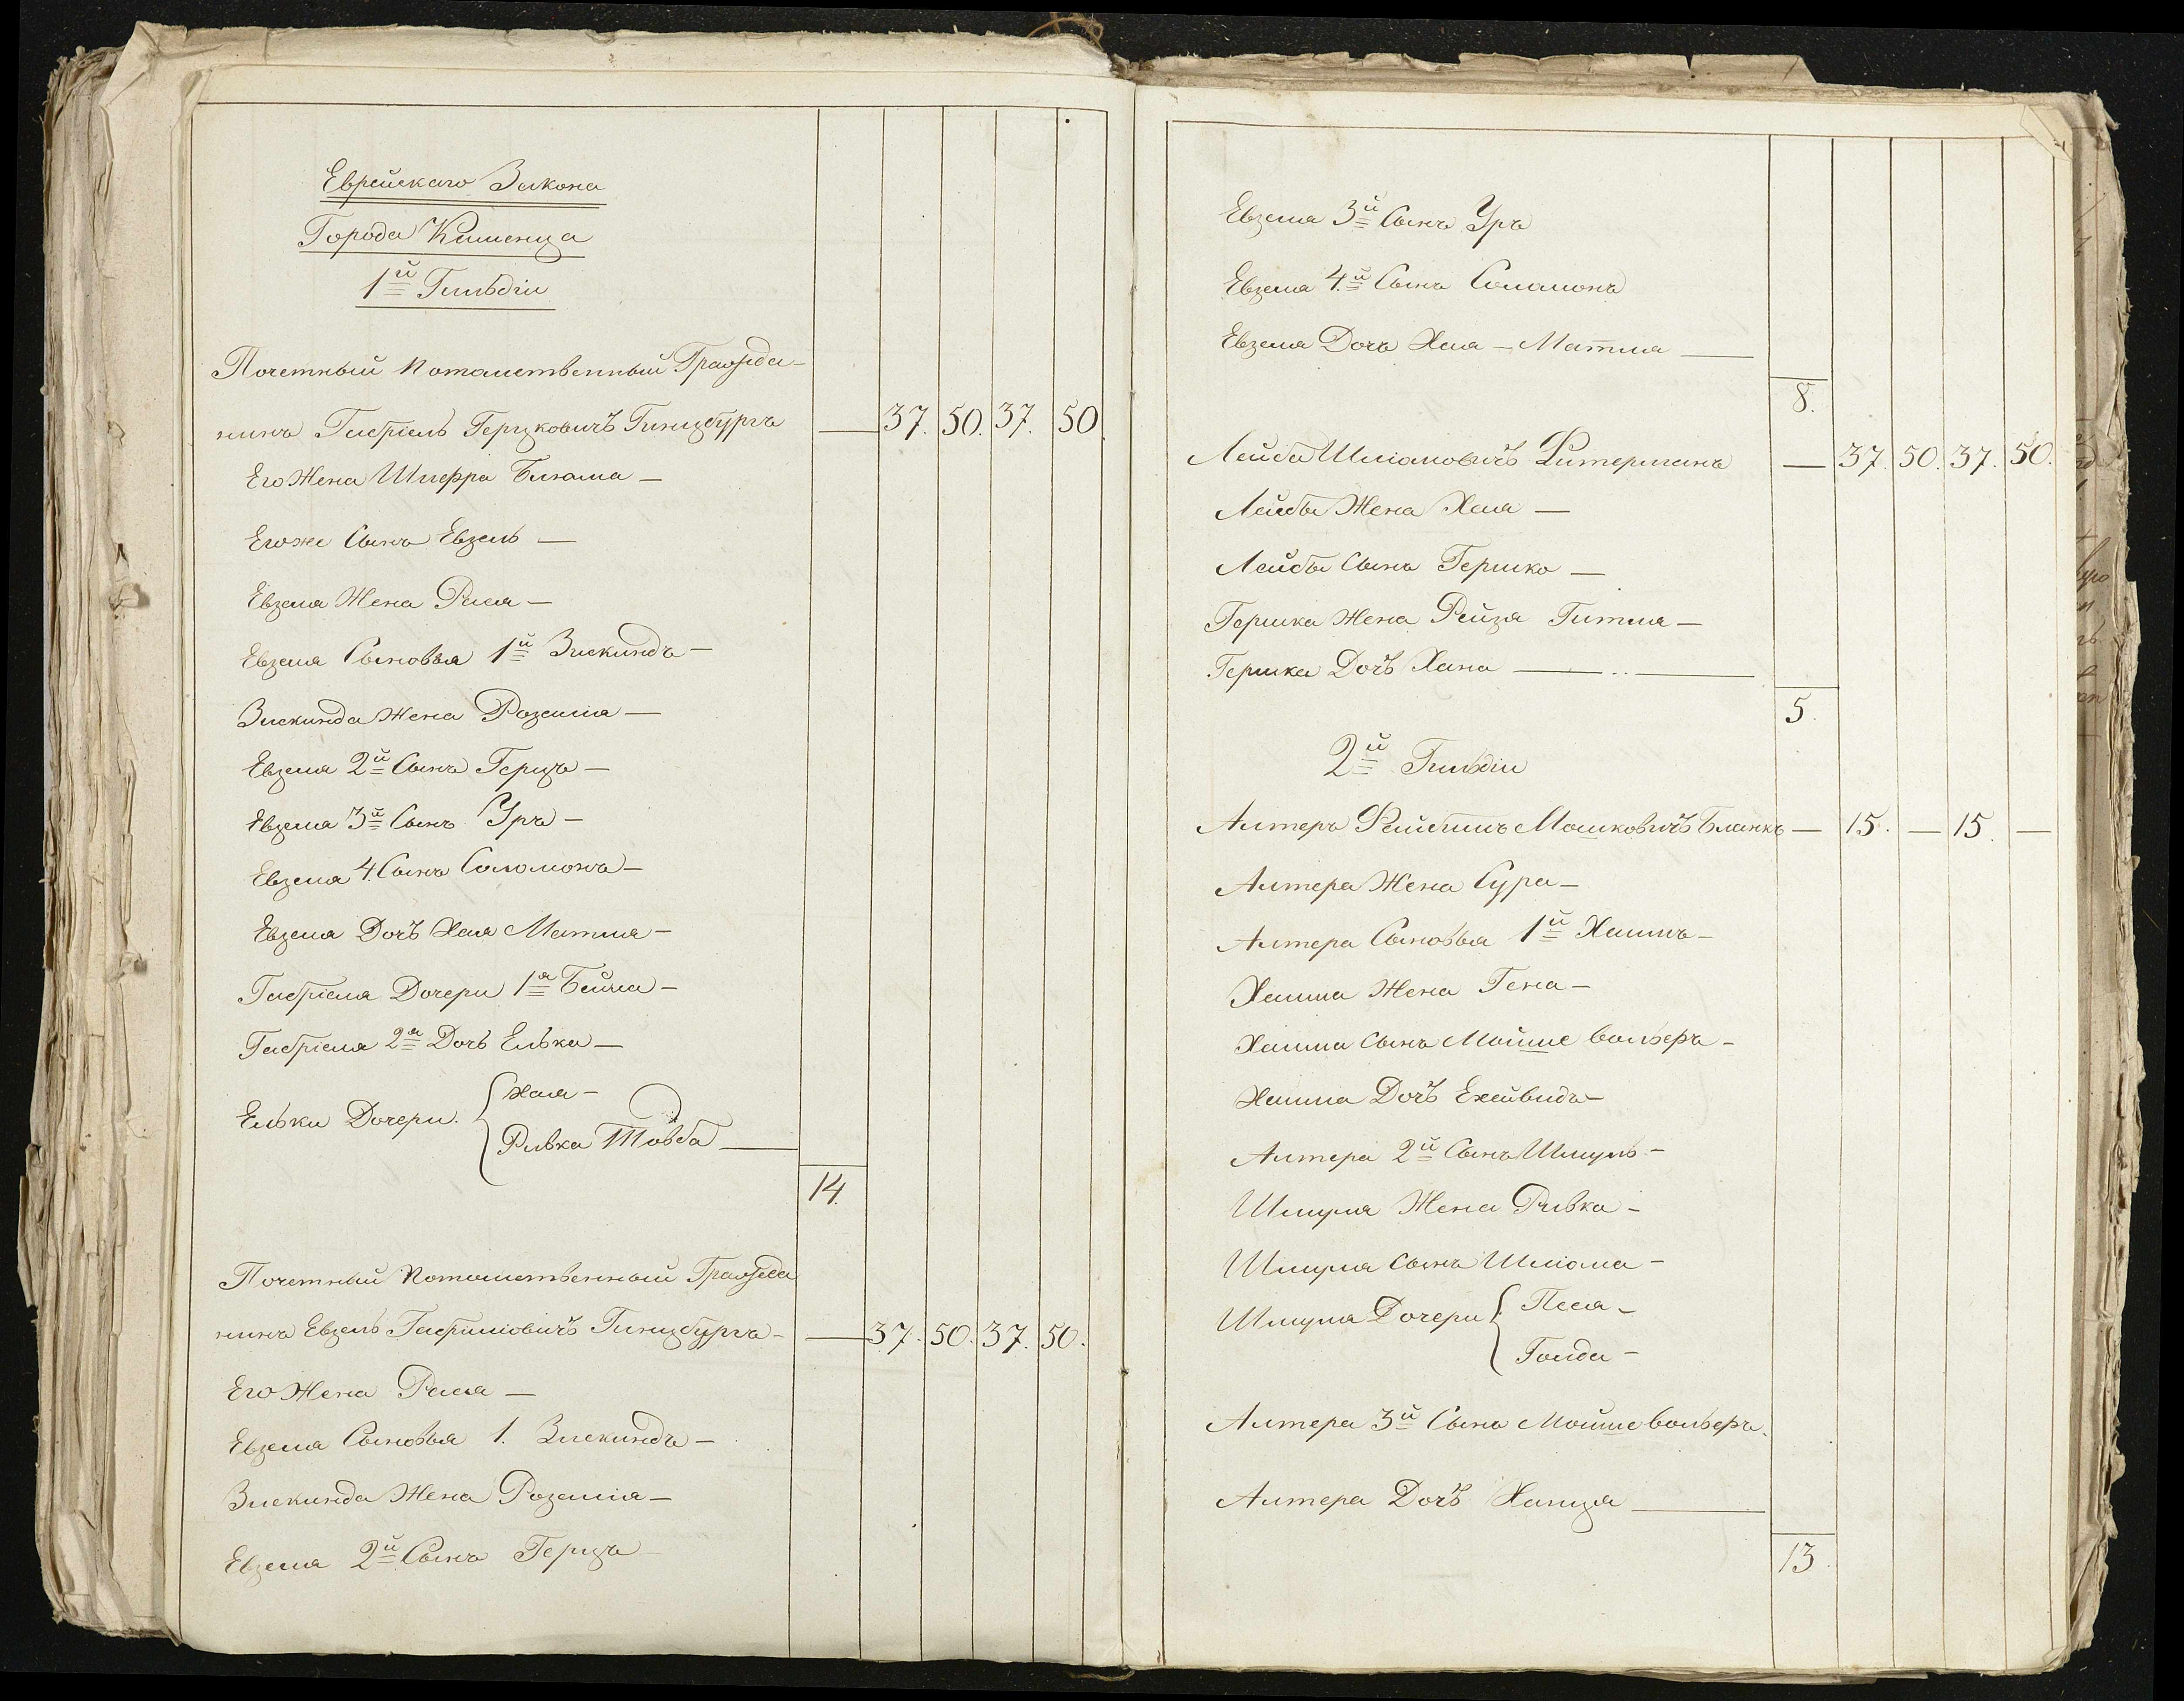 Еврейскаго Закона
Города Каменца
1й Гильдіи
Почетный Потомственный Гражда-
нинъ Габріель Герцковичъ Гинцбургъ — 37. 50. 37. 50
Его Жена Шпефра Блюма —
Егоже Сынъ Евзель —
Евзеля Жена Рася —
Евзеля Сыновья 1й Зискиндъ —
Зискинда Жена Розалія —
Евзеля 2й Сынъ Герцъ —
Евзеля 3й Сынъ Уръ —
Евзеля 4. Сынъ Соломонъ —
Евзеля Дочь Хая Матля —
Габріеля Дочери 1я Бейла —
Габріеля 2я Дочь Елька —
Ельки Дочери. Хая —
Ривка Товба —
14.
Почетный Потомственный Гражда
нинъ Евзель Габріиловичъ Гинцбургъ — 37. 50. 37. 50.
Его Жена Рася —
Евзеля Сыновья 1. Зискиндъ —
Зискинда Жена Розалія —
Евзеля 2й Сынъ Герцъ
Евзеля 3й Сынъ Уръ
Евзеля 4й Сынъ Соломонъ
Евзеля Дочь Хая — Матля —
8.
Лейба Шліомовичъ Литерманъ — 37. 50. 37. 50.
Лейбы Жена Хая —
Лейбы Сынъ Гершко —
Гершка Жена Рейзя Гитля —
Гершка Дочь Хана —
5.
2й Гильдіи
Алтеръ Файбишъ Мошковичъ Бланкъ — 15. — 15. —
Алтера Жена Сура —
Алтера Сыновья 1й Хаимъ —
Хаима Жена Гена —
Хаима Сынъ Мойше Вольфъ —
Хаима Дочь Ехейвидъ —
Алтера 2й Сынъ Шмуль —
Шмуля Жена Ривка —
Шмуля Сынъ Шліома —
Шмуля Дочери Песя —
Голда —
Алтера 3й Сынъ Мойше Вольфъ.
Алтера Дочь Ханця —
13